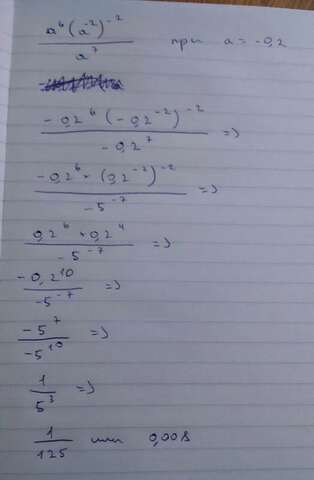 a⁶(a⁻²)⁻² / a⁷ при a = -0,2
-0,2⁶ (-0,2⁻²)⁻² / -0,2⁷ =>
-0,2⁶ · (0,2⁻²)⁻² / -5⁻⁷ =>
0,2⁶ · 0,2⁴ / -5⁻⁷ =>
-0,2¹⁰ / -5⁻⁷ =>
-5⁷ / -5¹⁰ =>
1 / 5³ =>
1 / 125 или 0,008